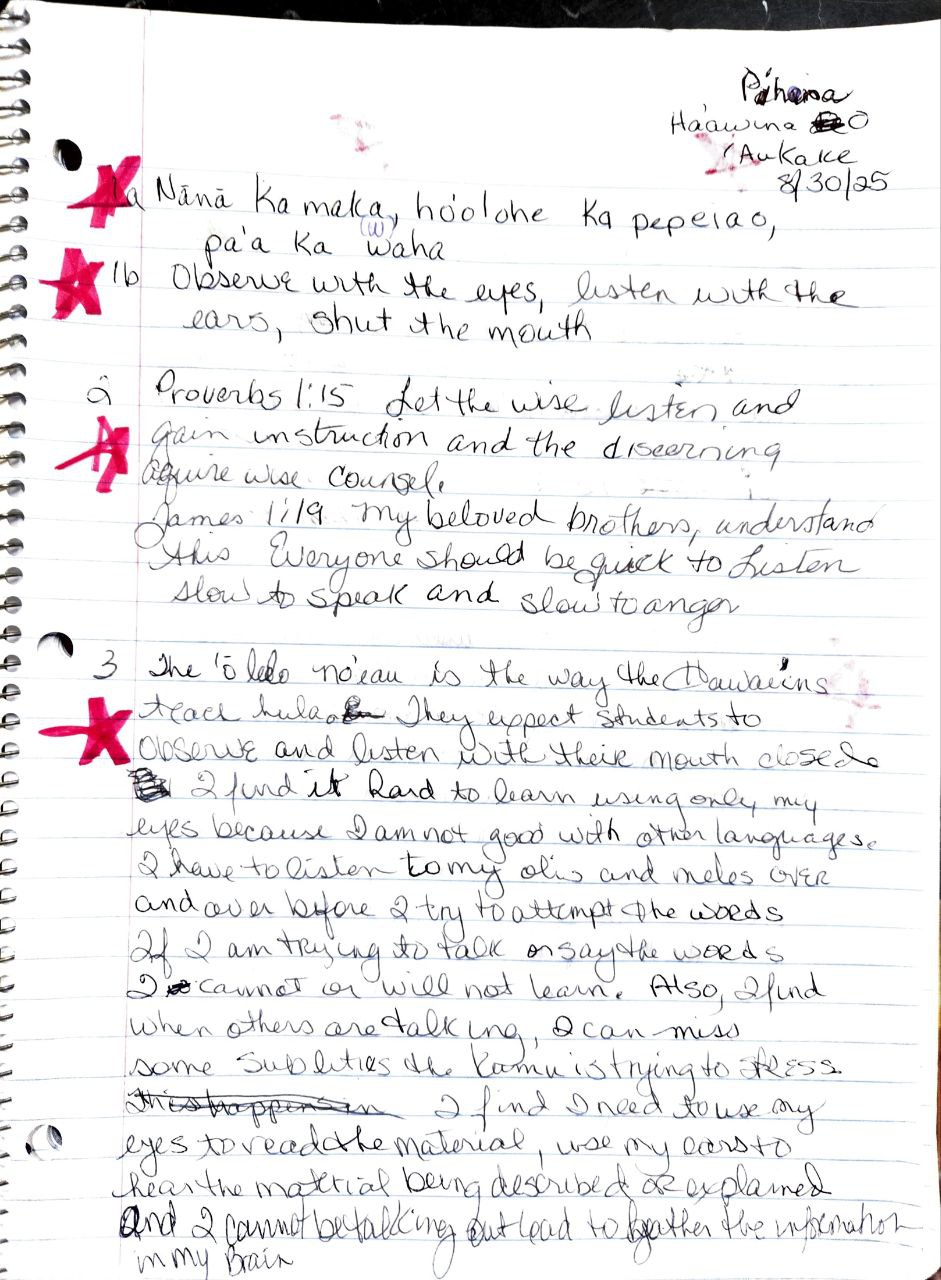 Pihana
Ha'awina 0
'Aukake
8/30/25
1a Nānā Ka maka, ho'olohe Ka pepeiao,
(w)
pa'a Ka waha
1b Observe with the eyes, listen with the
ears, shut the mouth
2 Proverbs 1:15 Let the wise listen and
gain instruction and the discerning
aquire wise counsel.
James 1:19 My beloved brothers, understand
this Everyone should be quick to Listen
slow to speak and slow to anger
3 The 'ōlelo no'eau is the way the Hawaiins
teach hula. They expect students to
observe and listen with their mouth closed.
I find it hard to learn using only my
eyes because I am not good with other languages.
I have to listen to my olis and meles over
and over before I try to attempt the words
If I am trying to talk or say the words
I cannot or will not learn. Also, I find
when others are talking, I can miss
some sublities the Kumu is trying to stress.
I find I need to use my
eyes to read the material, use my ears to
hear the material being described or explained
and I cannot be talking out lead to gather the information
in my Brain